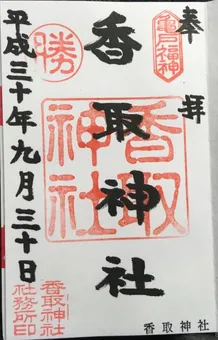 奉拝
亀戸福神
香取神社
香取神社
勝
平成三十年九月三十日
香取神社
社務所印
香取神社